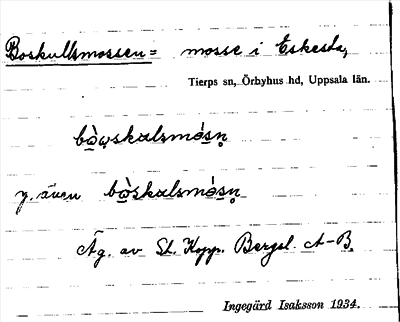 Boskullsmossen = mosse i Eskesta,
Tierps sn, Örbyhus hd, Uppsala län.
bɷ̀ɷskɷlsmósn̥
y. även bɷ̀skɷlsmósn̥
Äg. av St. Kopp. Bergsl. A-B.
Ingegärd Isaksson 1934.